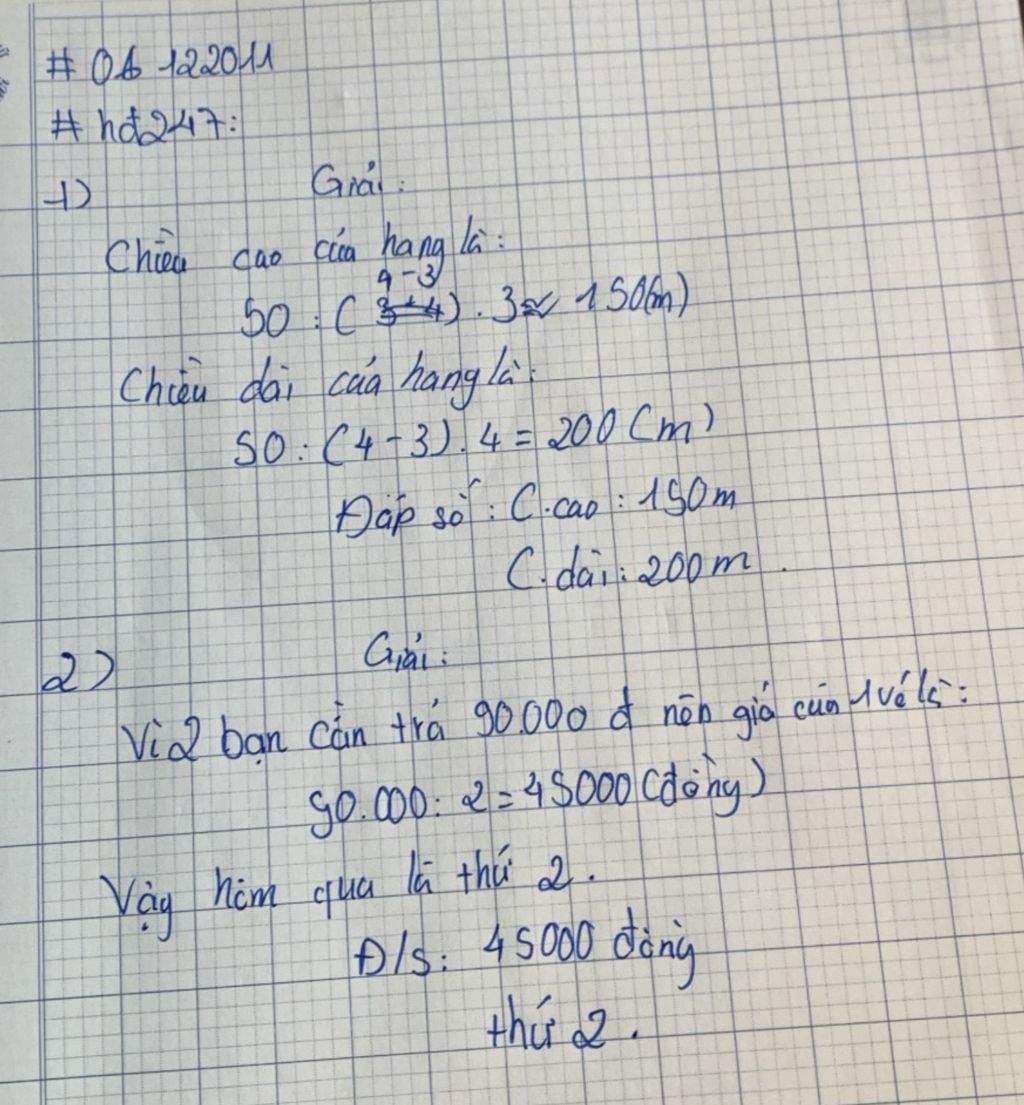 # 06 122011
# hđ247:
1) Giải:
Chiều cao của hang là:
4-3
50 : ( 3+4 ) . 3 = 150(m)
Chiều dài của hang là:
50 : (4-3) . 4 = 200 (m)
Đáp số : C.cao : 150m
C.dài : 200m .
2) Giải :
Vì 2 bạn cần trả 90.000 đ nên giá của 1 vé là :
90.000 : 2 = 45000 (đồng)
Vậy hôm qua là thứ 2 .
Đ/S : 45000 đồng
thứ 2 .